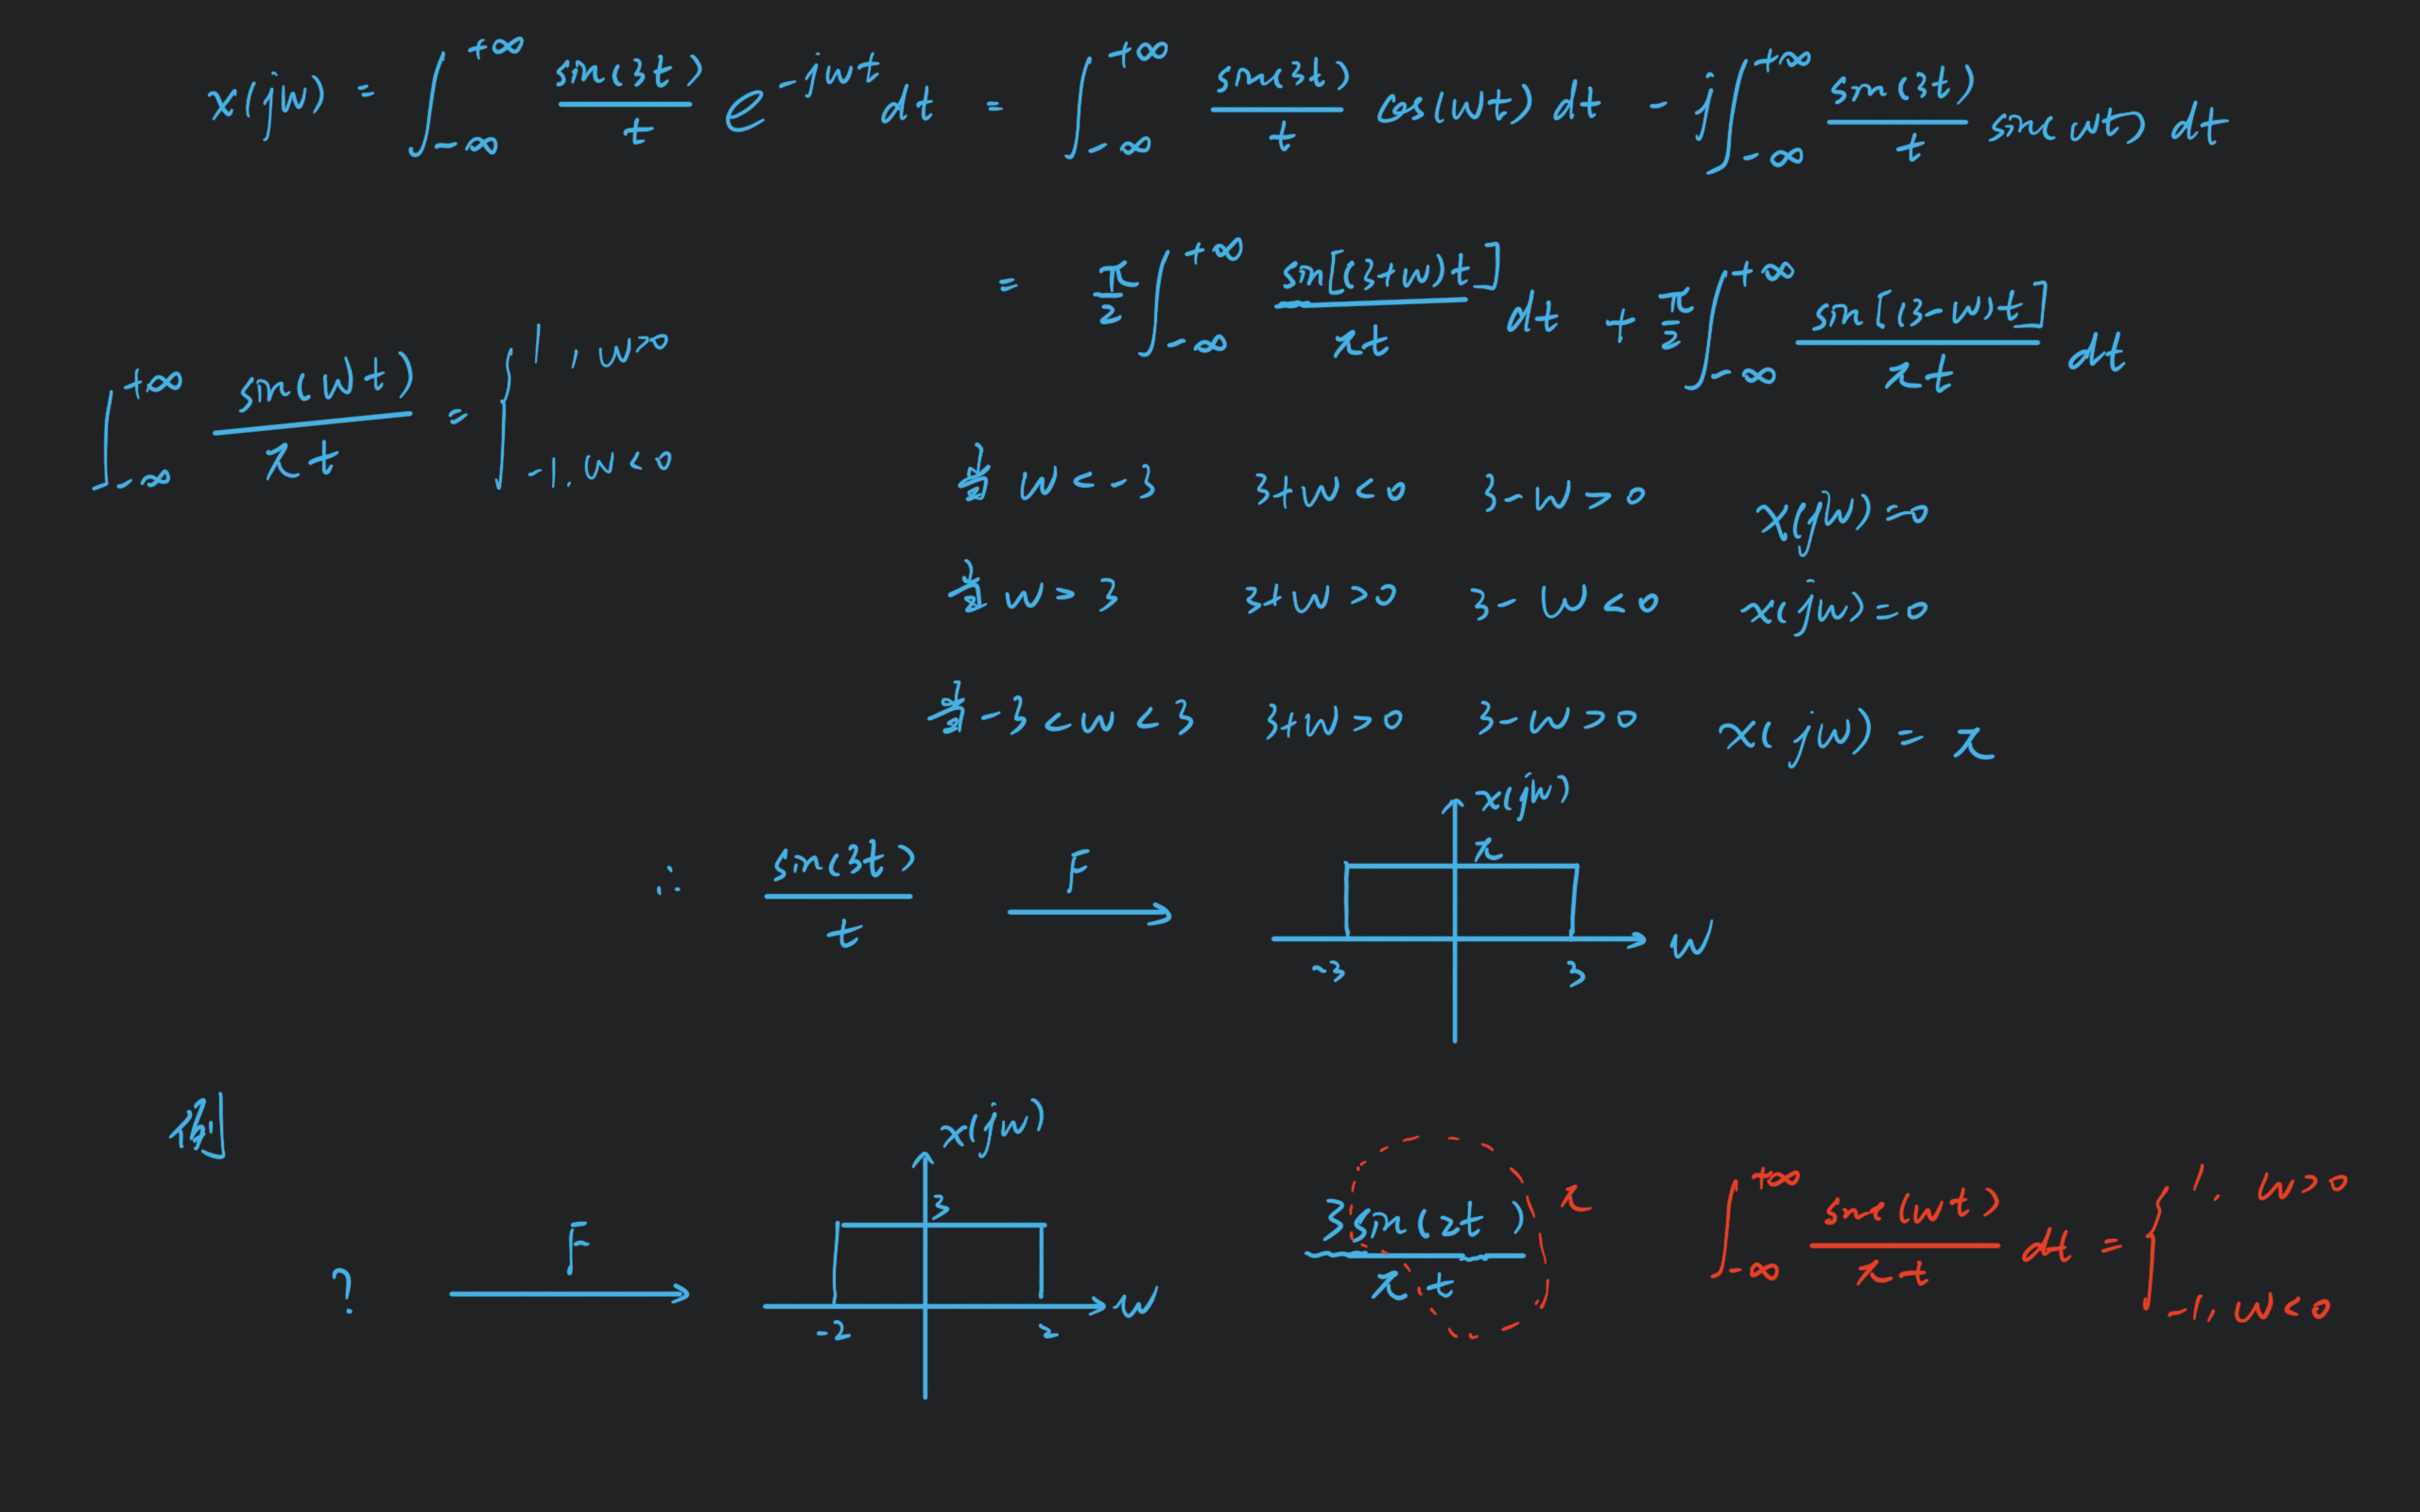 x(jw) = ∫_{-∞}^{+∞} sin(3t)/t e^{-jwt} dt = ∫_{-∞}^{+∞} sin(3t)/t cos(wt) dt - j∫_{-∞}^{+∞} sin(3t)/t sin(wt) dt
= π/2 ∫_{-∞}^{+∞} sin[(3+w)t]/πt dt + π/2 ∫_{-∞}^{+∞} sin[(3-w)t]/πt dt
∫_{-∞}^{+∞} sin(wt)/πt = { 1, w>0
-1, w<0
当 w<-3 3+w<0 3-w>0 x(jw)=0
当 w>3 3+w>0 3-w<0 x(jw)=0
当 -3<w<3 3+w>0 3-w>0 x(jw)=π
x(jw)
π
∴ sin(3t)/t F
w
-3 3
例
x(jw)
3
? F
w
-2 2
3sin(2t)/πt π
∫_{-∞}^{+∞} sin(wt)/πt dt = { 1, w>0
-1, w<0